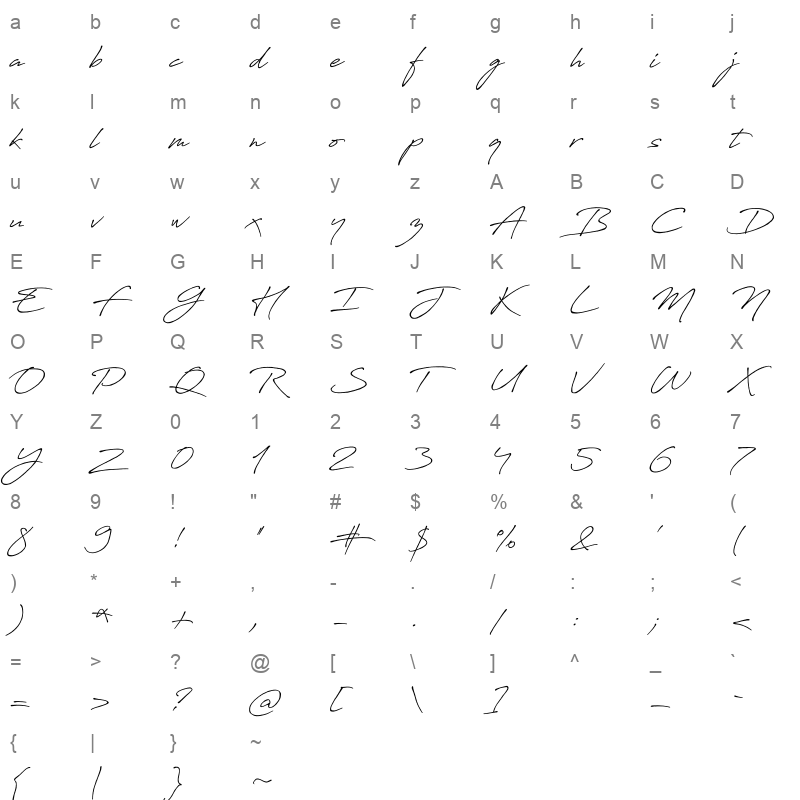 a b c d e f g h i j
a b c d e f g h i j
k l m n o p q r s t
k l m n o p q r s t
u v w x y z A B C D
u v w x y z A B C D
E F G H I J K L M N
E F G H I J K L M N
O P Q R S T U V W X
O P Q R S T U V W X
Y Z 0 1 2 3 4 5 6 7
Y Z 0 1 2 3 4 5 6 7
8 9 ! " # $ % & ' (
8 9 ! " # $ % & ' (
) * + , - . / : ; <
) * + , - . / : ; <
= > ? @ [ \ ] ^ _ `
= > ? @ [ \ ] _ `
{ | } ~
{ | } ~